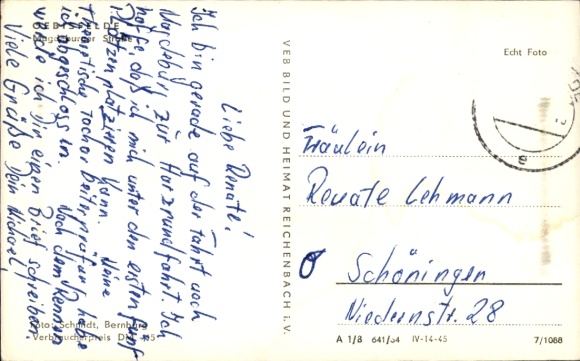 OEBISFELDE
Magdeburger Straße
Liebe Renate!
Ich bin gerade auf der Fahrt nach
Magdeburg zur Harzrundfahrt. Ich
hoffe, daß ich mich unter den ersten fünf
Plätzen platzieren kann. Meine
theoretische Facharbeiterprüfung habe
ich abgeschlossen. Nach dem Rennen
werde ich Dir einen Brief schreiben.
Viele Grüße Dein Michael!
Foto: Schmidt, Bernburg
Verbraucherpreis DM
VEB BILD UND HEIMAT REICHENBACH i. V.
Echt Foto
Fräulein
Renate Lehmann
Schöningen
Niedernstr. 28
A 1/B 641/54 IV-14-45 7/1088